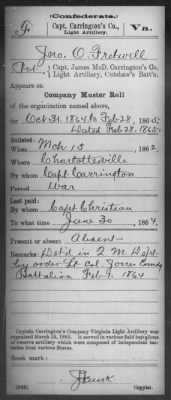 (Confederate.)
F
Capt. Carrington's Co.,
Light Artillery.
Va.
Jno. O. Fretwell
Pvt, Capt. James McD. Carrington's Co.
Light Artillery, Cutshaw's Batt'n.
Appears on
Company Muster Roll
of the organization named above,
for Oct 31 1864 to Feb 28, 1865.
Dated Feb 28, 1865.
Enlisted:
When Mch 13, 1862.
Where Charlottesville
By whom Capt Carrington
Period War
Last paid:
By whom Capt Christian
To what time June 30, 1864.
Present or absent: Absent
Remarks: Det'd in Q. M. Dept
by order Lt Col Jones Comdg
Battalion Feb 9. 1864
Captain Carrington's Company Virginia Light Artillery was
organized March 13, 1862. It served in various field battalions
of reserve artillery which were composed of independent batteries from various Bureau.
Book mark:
(642)
Copyist.